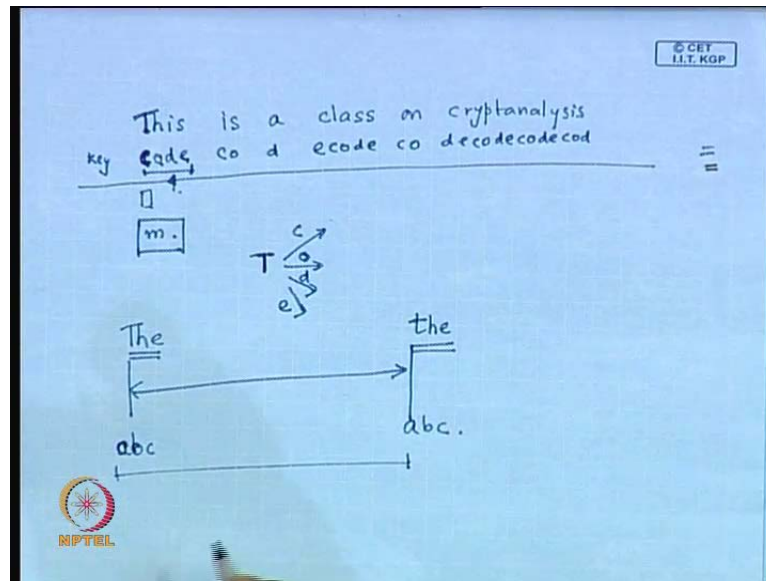 © CET
I.I.T. KGP
This is a class on cryptanalysis
key code co d ecode co decodecodecod
m.
c
T o
d
e
The the
abc abc.
NPTEL